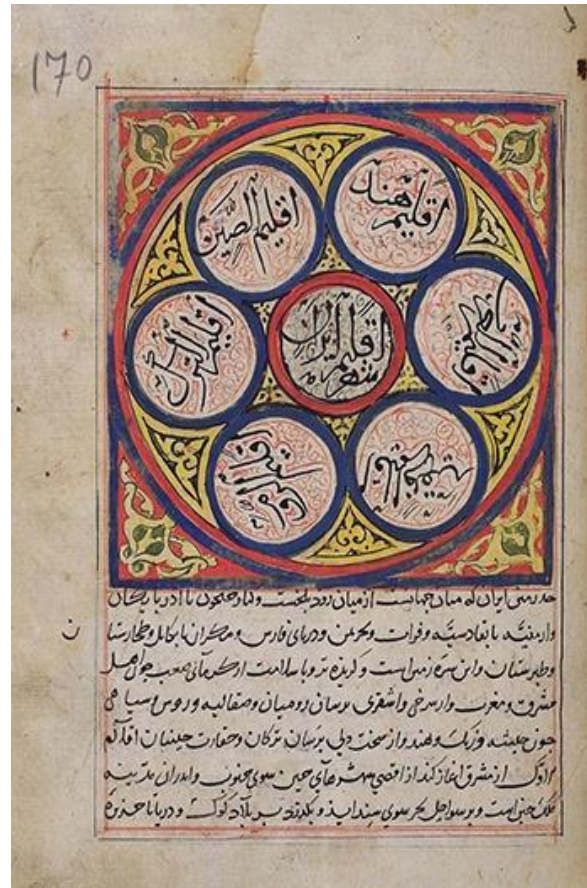 170
اقلیم الصین
اقلیم هند
اقلیم ایران
شهر
حد زمین ایران که میان جهانست از میان رود بلخست و کنار جیحون تا آذربایکان
وارمنیّه تا بقادسیّه وفرات وبحر یمن ودریای فارس ومکران تا بکابل وطخارستا
ن
وطبرستان واین سرّه زمین است و کزیده تر وباسلامت از کرمای صعب چون اهل
مشرق ومغرب واز سرخی واشقری برسان رومیان وصقالبه وروس وسیاهی
چون حبشه وزنک وهند واز سخت دلی برسیان ترکان وحقارت چینیان
از مشرق آغاز کند از اقصی شهرهای چین سوی جنوب واندران مدینه
ملک چین است وبر سواحل بحر سوی سند آید و بکذرد بر بلاد و دریا تا جزیرة